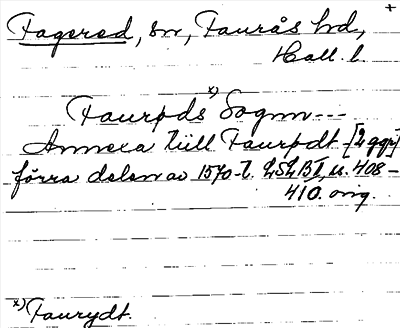 +
Fagered, sn, Faurås hd,
Hall. l.
Faurøds x) Sogn---
Annexa till Faurødt. [2 ggr]
förra delen av 1570-t. LSLB I, u. 408-
410. orig.
x) Faurydt.